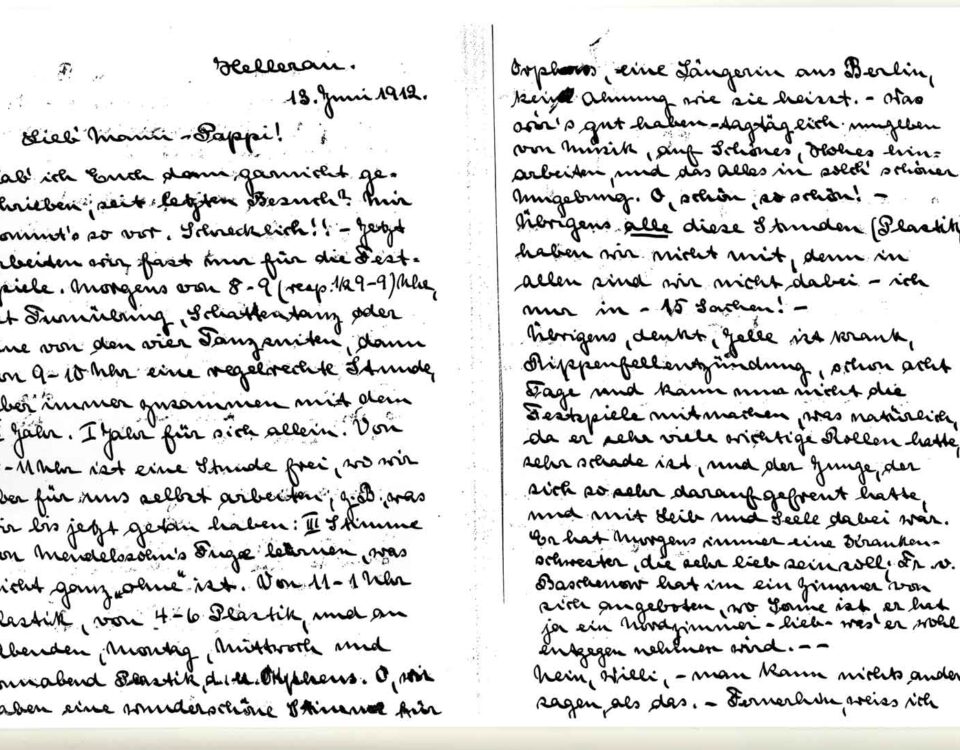 Hellerau.
13. Juni 1912.
Lieb' Mami-Pappi!
ab' ich Euch denn garnicht ge-
chrieben, seit letzten Besuch? Mir
ommt's so vor. Schrecklich!! - Jetzt
rbeiten wir fast nur für die Fest-
piele. Morgens von 8-9 (resp. 1/2 9-9) Uhr,
t Turnübung, Schattentanz oder
ne von den vier Tanzsuiten, dann
on 9-10 Uhr eine regelrechte Stunde,
ber immer zusammen mit dem
Jahr. I Jahr für sich allein. Von
-11 Uhr ist eine Stunde frei, wo wir
ber für uns selbst arbeiten, z.B. was
ir bis jetzt getan haben: III Stimme
on Mendelssohn's Fuge lernen, was
icht ganz „ohne" ist. Von 11-1 Uhr
lastik, von 4-6 Plastik, und an
benden, Montag, Mittwoch und
onnabend Plastik, d.h. Orpheus. O, wir
aben eine wunderschöne Stimme für
Orpheus, eine Sängerin aus Berlin,
keine Ahnung wie sie heisst. - Was
wir's gut haben - tagtäglich umgeben
von Musik, auf Schönes, Hohes hin-
arbeiten, und das Alles in solch' schöner
Umgebung. O, schön, so schön! -
Übrigens alle diese Stunden (Plastik
haben wir nicht mit, denn in
allen sind wir nicht dabei - ich
nur in - 15 Sachen! -
Übrigens, denkt, Jelle ist krank,
Rippenfellentzündung, schon acht
Tage und kann nun nicht die
Festspiele mitmachen, was natürlich,
da er sehr viele wichtige Rollen hatte,
sehr schade ist, und der Junge, der
sich so sehr darauf gefreut hatte,
und mit Leib und Seele dabei war.
Er hat Morgens immer eine Kranken-
schwester, die sehr lieb sein soll; Fr. v.
Baschenow hat im ein Zimmer von
sich angeboten, wo Sonne ist, er hat
ja ein Nordzimmer - lieb - was er wohl
entgegen nehmen wird. - -
Nein, Willi, - man kann nichts ander
sagen, als das. - Fernerhin, weiss ich